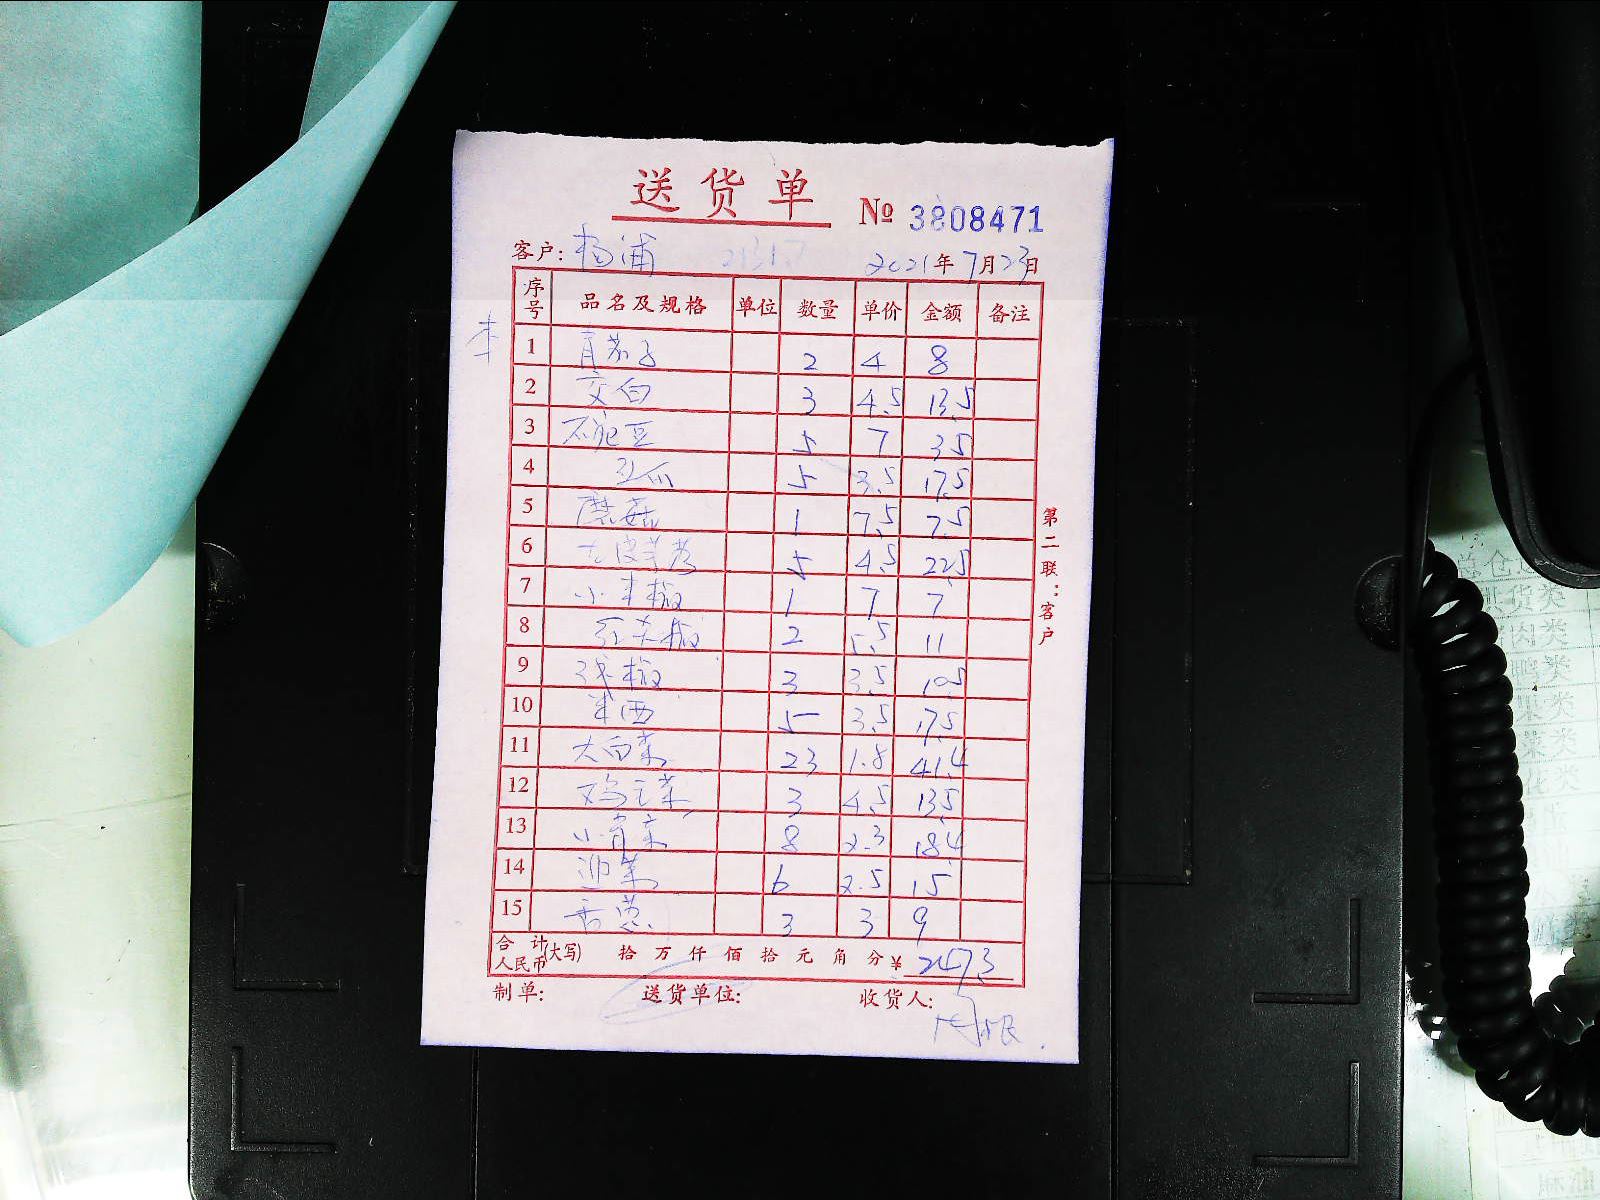 送货单
№ 3808471
客户: 杨浦 2021年7月23日
序号 品名及规格 单位 数量 单价 金额 备注
1 2 4 8
2 交白 3 4.5 13.5
3 5 7 35
4 5 3.5 17.5
5 蘑菇 1 7.5 7.5
6 5 4.5 22.5
7 小米椒 1 7 7
8 红尖椒 2 5.5 11
9 线椒 3 3.5 10.5
10 5 3.5 17.5
11 大白菜 23 1.8 41.4
12 鸡毛菜 3 4.5 13.5
13 小青菜 8 2.3 18.4
14 6 2.5 15
15 香葱 3 3 9
合计人民币(大写) 拾 万 仟 佰 拾 元 角 分 ¥ 247.3
制单: 送货单位: 收货人:
第二联:客户